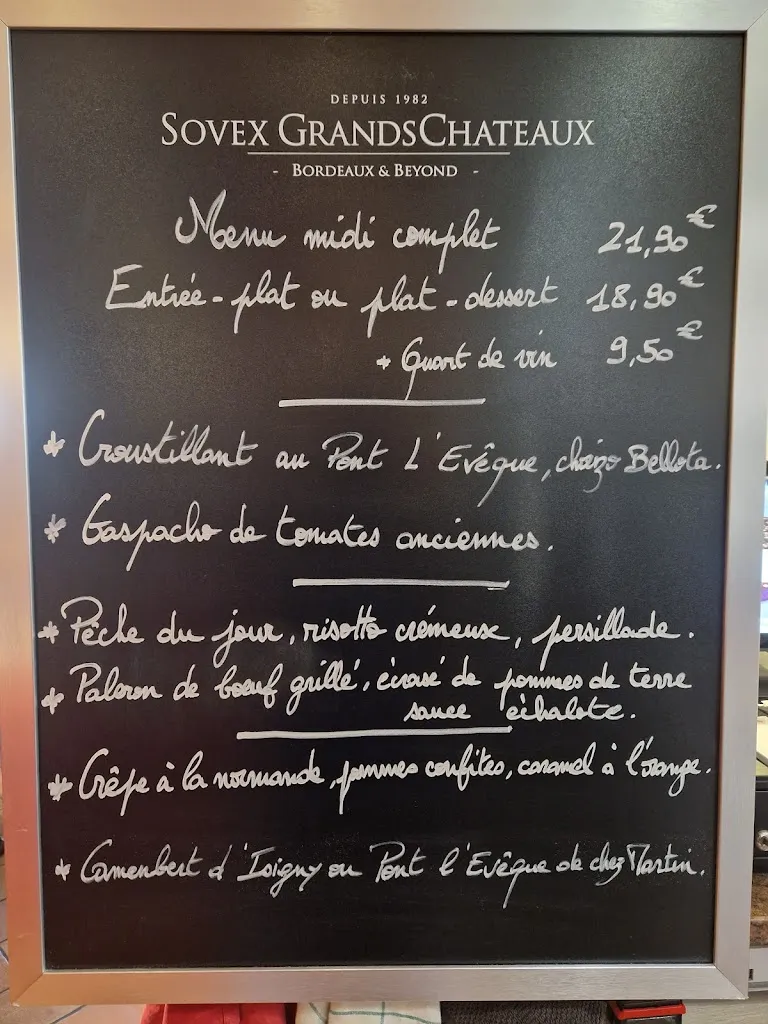 DEPUIS 1982
SOVEX GRANDSCHATEAUX
- BORDEAUX & BEYOND -
Menu midi complet 21,90€
Entrée - plat ou plat - dessert 18,90€
+ Quart de vin 9,50€
* Croustillant au Pont L'Evêque, chorizo Bellota.
* Gaspacho de tomates anciennes.
* Pêche du jour, risotto crémeux, persillade.
* Paleron de boeuf grillé, écrasé de pommes de terre
sauce échalote.
* Crêpe à la normande, pommes confites, caramel à l'orange.
* Camembert d'Isigny ou Pont l'Evêque de chez Martin.